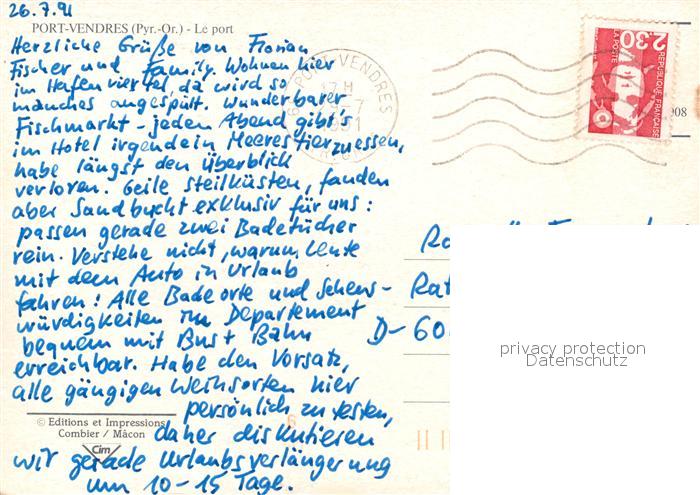 26.7.91
PORT-VENDRES (Pyr.-Or.) - Le port
Herzliche Grüße von Florian
Fischer und Family. Wohnen hier
im Hafenviertel, da wird so
manches angespült. Wunderbarer
Fischmarkt - jeden Abend gibt's
im Hotel irgendein Meerestier zu essen,
habe längst den Überblick
verloren. Geile Steilküsten, fanden
aber Sandbucht exklusiv für uns:
passen gerade zwei Badetücher
rein. Verstehe nicht, warum Leute
mit dem Auto in Urlaub
fahren! Alle Badeorte und Sehens-
würdigkeiten im Departement
bequem mit Bus + Bahn
erreichbar. Habe den Vorsatz,
alle gängigen Weinsorten hier
persönlich zu testen,
daher diskutieren
wir gerade Urlaubsverlängerung
um 10-15 Tage.
© Editions et Impressions
Combier / Mâcon
Cim
PORT VENDRES
17 H
1991
2.30
LA POSTE
REPUBLIQUE FRANÇAISE
908
Rat
D-60
privacy protection
Datenschutz